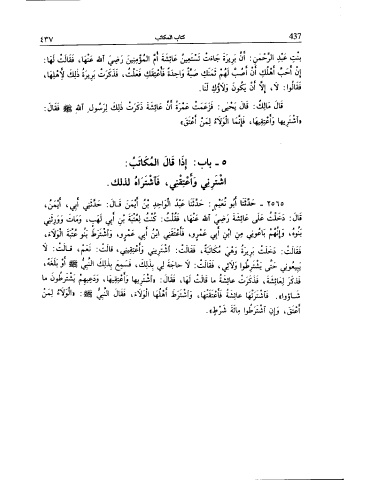 ٤٣٧ كتاب المكاتب 437
بِنْتِ عَبْدِ الرَّحْمٰنِ: أَنَّ بَرِيرَةَ جَاءَتْ تَسْتَعِينُ عَائِشَةَ أُمَّ الْمُؤْمِنِينَ رَضِيَ اللهُ عَنْهَا، فَقَالَتْ لَهَا:
إِنْ أَحَبَّ أَهْلُكِ أَنْ أَصُبَّ لَهُمْ ثَمَنَكِ صَبَّةً وَاحِدَةً فَأُعْتِقَكِ فَعَلْتُ، فَذَكَرَتْ بَرِيرَةُ ذٰلِكَ لِأَهْلِهَا،
فَقَالُوا: لَا، إِلَّا أَنْ يَكُونَ وَلَاؤُكِ لَنَا.
قَالَ مَالِكٌ: قَالَ يَحْيَى: فَزَعَمَتْ عَمْرَةُ أَنَّ عَائِشَةَ ذَكَرَتْ ذٰلِكَ لِرَسُولِ اللهِ ﷺ فَقَالَ:
«اشْتَرِيهَا وَأَعْتِقِيهَا، فَإِنَّمَا الْوَلَاءُ لِمَنْ أَعْتَقَ»
٥ - باب: إِذَا قَالَ المُكَاتَبُ:
اشْتَرِنِي وَأَعْتِقْنِي، فَاشْتَرَاهُ لذلك.
٢٥٦٥ - حَدَّثَنَا أَبُو نُعَيْمٍ: حَدَّثَنَا عَبْدُ الْوَاحِدِ بْنُ أَيْمَنَ قَالَ: حَدَّثَنِي أَبِي، أَيْمَنُ،
قَالَ: دَخَلْتُ عَلَى عَائِشَةَ رَضِيَ اللهُ عَنْهَا، فَقُلْتُ: كُنْتُ لِعُتْبَةَ بْنِ أَبِي لَهَبٍ، وَمَاتَ وَوَرِثَنِي
بَنُوهُ، وَإِنَّهُمْ بَاعُونِي مِنِ ابْنِ أَبِي عَمْرٍو، فَأَعْتَقَنِي ابْنُ أَبِي عَمْرٍو، وَاشْتَرَطَ بَنُو عُتْبَةَ الْوَلَاءَ،
فَقَالَتْ: دَخَلَتْ بَرِيرَةُ وَهِيَ مُكَاتَبَةٌ، فَقَالَتْ: اشْتَرِينِي وَأَعْتِقِينِي، قَالَتْ: نَعَمْ، قَالَتْ: لَا
يَبِيعُونِي حَتَّى يَشْتَرِطُوا وَلَائِي، فَقَالَتْ: لَا حَاجَةَ لِي بِذٰلِكَ، فَسَمِعَ بِذٰلِكَ النَّبِيُّ ﷺ أَوْ بَلَغَهُ،
فَذَكَرَ لِعَائِشَةَ، فَذَكَرَتْ عَائِشَةُ مَا قَالَتْ لَهَا، فَقَالَ: «اشْتَرِيهَا وَأَعْتِقِيهَا، وَدَعِيهِمْ يَشْتَرِطُونَ مَا
شَاؤُوا». فَاشْتَرَتْهَا عَائِشَةُ فَأَعْتَقَتْهَا، وَاشْتَرَطَ أَهْلُهَا الْوَلَاءَ، فَقَالَ النَّبِيُّ ﷺ: «الْوَلَاءُ لِمَنْ
أَعْتَقَ، وَإِنِ اشْتَرَطُوا مِائَةَ شَرْطٍ».